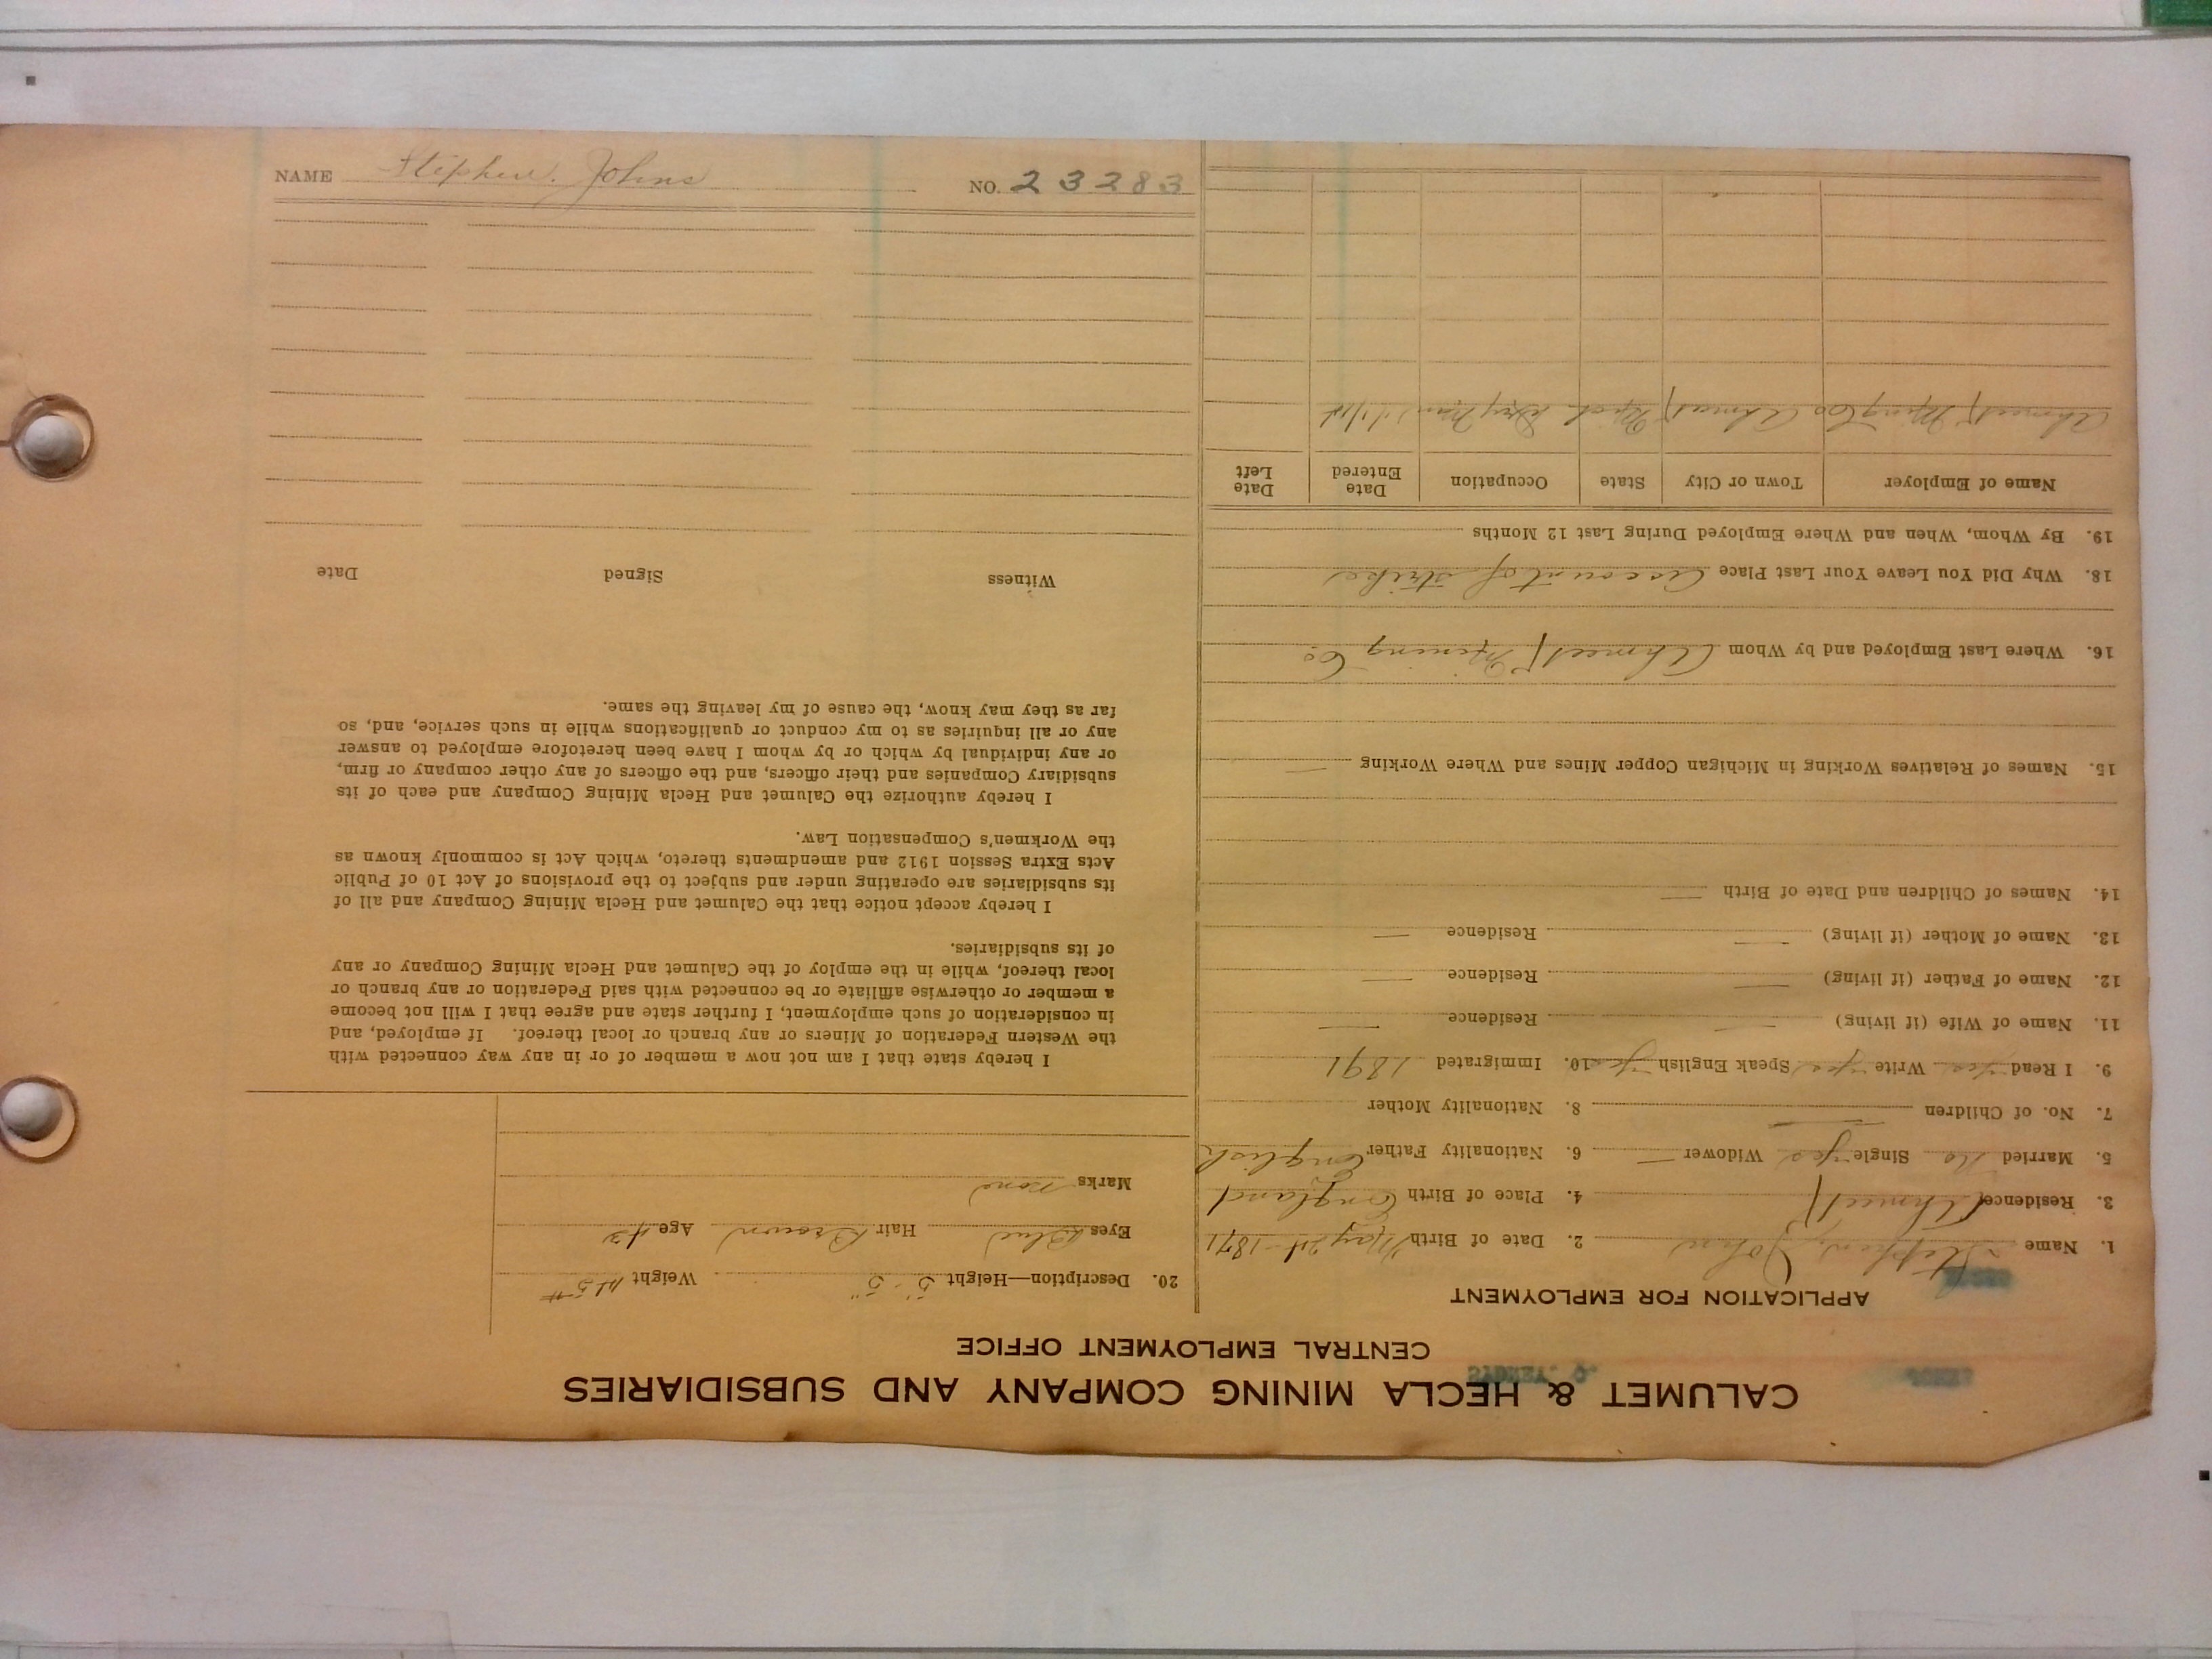 CALUMET & HECLA MINING COMPANY AND SUBSIDIARIES
CENTRAL EMPLOYMENT OFFICE
APPLICATION FOR EMPLOYMENT
1. Name Stephen Johns 2. Date of Birth May 1871
3. Residence Ahmeek 4. Place of Birth England
5. Married No Single Yes Widower — 6. Nationality Father English
7. No. of Children — 8. Nationality Mother
9. I Read yes Write yes Speak English yes 10. Immigrated 1891
11. Name of Wife (if living) — Residence —
12. Name of Father (if living) — Residence —
13. Name of Mother (if living) — Residence —
14. Names of Children and Date of Birth —
15. Names of Relatives Working in Michigan Copper Mines and Where Working —
16. Where Last Employed and by Whom Ahmeek Mining Co.
18. Why Did You Leave Your Last Place Account of strike
19. By Whom, When and Where Employed During Last 12 Months
Name of Employer Town or City State Occupation Date Entered Date Left
Ahmeek Mining Co Ahmeek Mich Dry Man
20. Description—Height 5' 5" Weight 145 #
Eyes Blue Hair Brown Age 43
Marks none
I hereby state that I am not now a member of or in any way connected with
the Western Federation of Miners or any branch or local thereof. If employed, and
in consideration of such employment, I further state and agree that I will not become
a member or otherwise affiliate or be connected with said Federation or any branch or
local thereof, while in the employ of the Calumet and Hecla Mining Company or any
of its subsidiaries.
I hereby accept notice that the Calumet and Hecla Mining Company and all of
its subsidiaries are operating under and subject to the provisions of Act 10 of Public
Acts Extra Session 1912 and amendments thereto, which Act is commonly known as
the Workmen's Compensation Law.
I hereby authorize the Calumet and Hecla Mining Company and each of its
subsidiary Companies and their officers, and the officers of any other company or firm,
or any individual by which or by whom I have been heretofore employed to answer
any or all inquiries as to my conduct or qualifications while in such service, and, so
far as they may know, the cause of my leaving the same.
Witness Signed Date
NAME Stephen Johns NO. 23283